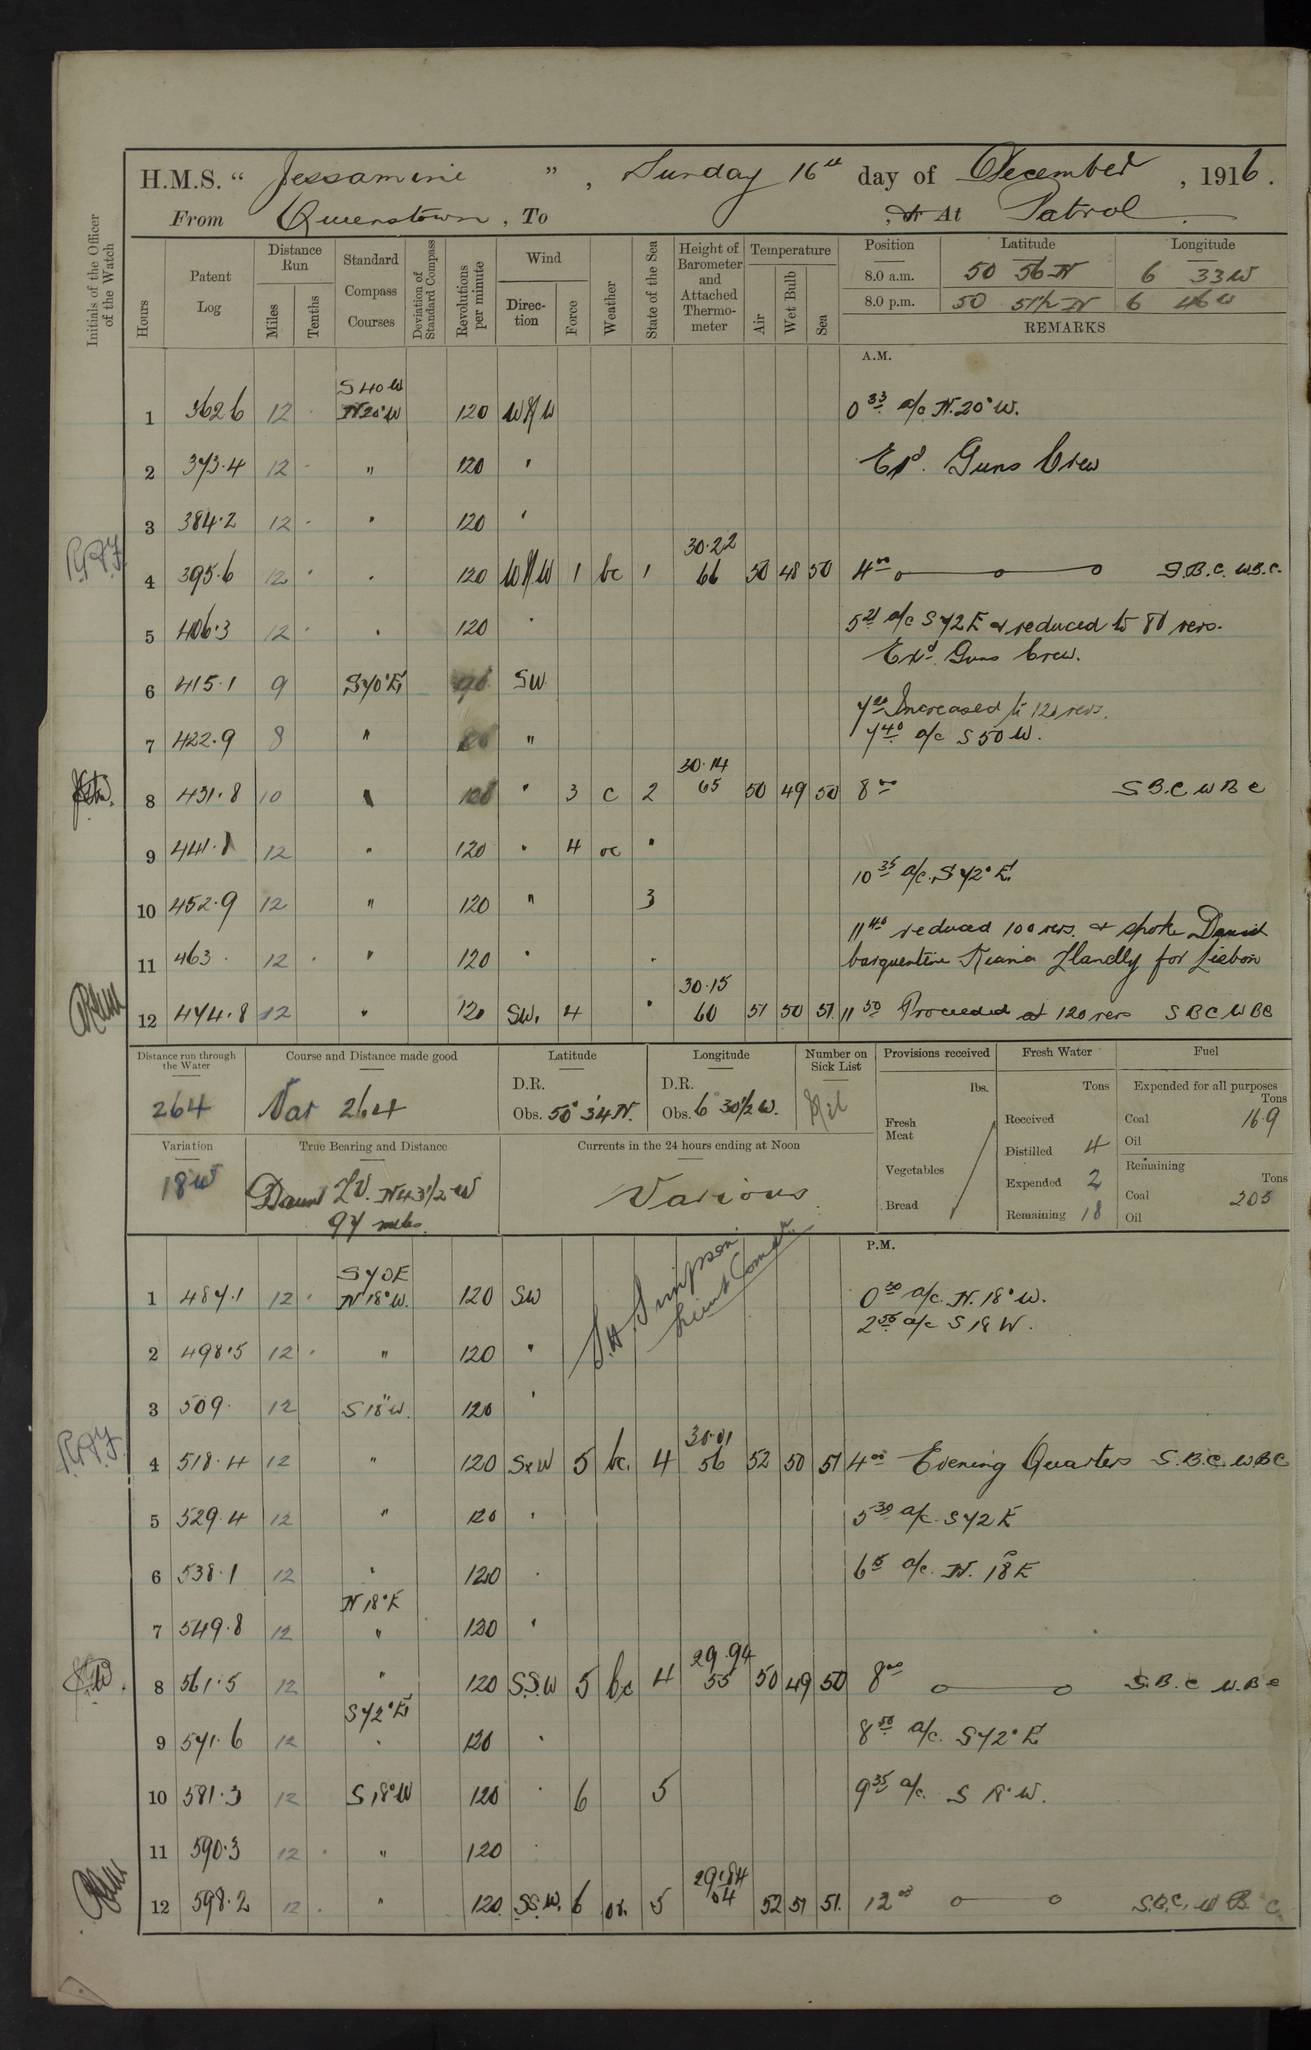 H.M.S. " Jessamine ", Sunday 16th day of December, 1916.
From Queenstown, To , or At Patrol
Initials of the Officer of the Watch
Hours
Patent Log
Distance Run
Miles
Tenths
Standard Compass Courses
Deviation of Standard Compass
Revolutions per minute
Wind
Direction
Force
Weather
State of the Sea
Height of Barometer and Attached Thermometer
Temperature
Air
Wet Bulb
Sea
Position Latitude Longitude
8.0 a.m. 50 56 N 6 33 W
8.0 p.m. 50 51½ N 6 46 W
REMARKS
A.M.
S 40 W
1 362 6 12 N 20° W 120 W 0 33 a/c N. 20° W.
2 373.4 12 " 120 " Exd. Guns Crew
3 384.2 12 " 120 "
30.22
4 395.6 12 " 120 1 bc 1 66 50 48 50 4 00 S.B.C. W.B.C.
5 406.3 12 " 120 " 5 21 a/c S 72 E & reduced to 80 revs.
Exd. Guns Crew.
6 415.1 9 S 70° E SW
7 00 Increased to 120 revs.
7 422.9 8 " " 7 40 a/c S 50 W.
30.14
8 431.8 10 " 120 " 3 c 2 65 50 49 50 8 00 S B.C W B C
9 441.8 12 " 120 " 4 oc "
10 35 a/c. S 72° E.
10 452.9 12 " 120 " 3
11 40 reduced 100 revs. & spoke Danish
11 463. 12 " 120 " barquentine for Lisbon
30.15
12 474.8 12 " 120 SW. 4 " 60 51 50 51 11 50 Proceeded at 120 revs S B C W B C
Distance run through the Water
264
Course and Distance made good
Var 264
Latitude
D.R.
Obs. 50° 34 N.
Longitude
D.R.
Obs. 6 30½ W.
Number on Sick List
Nil
Provisions received
lbs.
Fresh Meat
Vegetables
Bread
Fresh Water
Tons
Received
Distilled 4
Expended 2
Remaining 18
Fuel
Expended for all purposes
Tons
Coal 16.9
Oil
Remaining
Tons
Coal 205
Oil
Variation
18 W
True Bearing and Distance
Daunt L.V. N 43½ W
97 miles.
Currents in the 24 hours ending at Noon
Various
S.A. Simpson
Lieut Comdr.
P.M.
S 70 E
1 487.1 12 N 18° W. 120 SW 0 30 a/c. N. 18° W.
2 55 a/c S 18 W.
2 498.5 12 " 120 "
3 509. 12 S 18° W. 120 "
30.01
4 518.4 12 " 120 SxW 5 bc. 4 56 52 50 51 4 00 Evening Quarters S.B.C. W B C
5 529.4 12 " 120 " 5 30 a/c. S 72 E
6 538.1 12 " 120 " 6 15 a/c. N. 18 E
N 18° E
7 549.8 12 " 120 "
29.94
8 561.5 12 " 120 S.S.W 5 bc 4 55 50 49 50 8 00 S.B.C W.B C
S 72° E
9 571.6 12 " 120 " 8 50 a/c. S 72° E
10 581.3 12 S 18° W 120 " 6 5 9 35 a/c. S 18° W.
11 590.3 12 " 120 "
29.84
12 598.2 12 " 120 S.S.W. 6 5 54 52 51 51. 12 00 S.B.C. W B C.